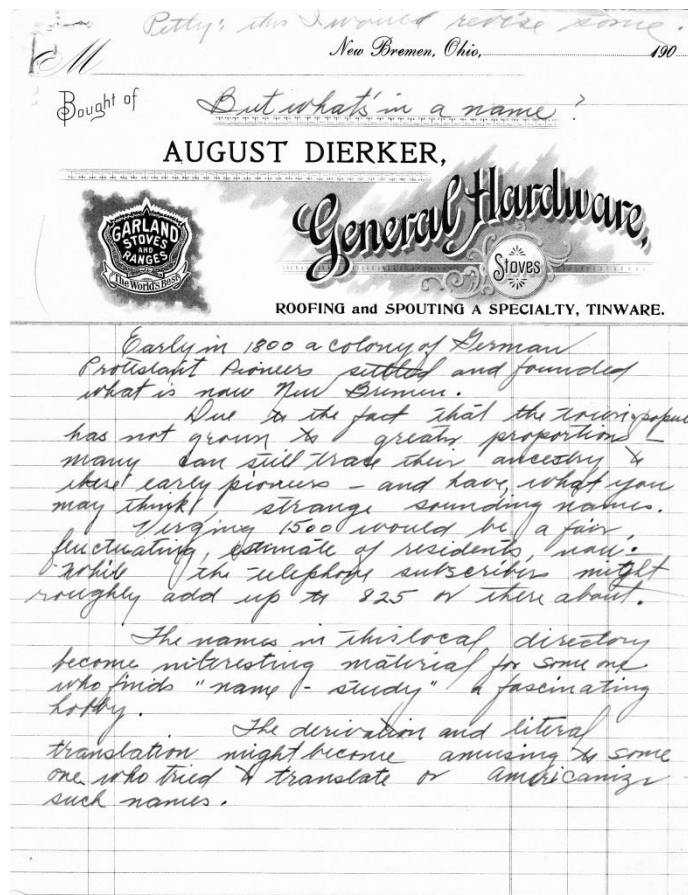 Petty: this I would revise some.
M
New Bremen, Ohio, 190
Bought of
But what's in a name?
AUGUST DIERKER,
General Hardware,
GARLAND
STOVES
AND
RANGES
The World's Best
Stoves
ROOFING and SPOUTING A SPECIALTY, TINWARE.
Early in 1800 a colony of German
Protestant Pioneers settled and founded
what is now New Bremen.
Due to the fact that the town popul
has not grown to greater proportions
many can still trace their ancestry to
these early pioneers - and have, what you
may think, strange sounding names.
Verging 1500 would be a fair,
fluctuating, estimate of residents, now.
While the telephone subscribers might
roughly add up to 825 or there about.
The names in this local directory
become interesting material for some one
who finds "name - study" a fascinating
hobby.
The derivation and literal
translation might become amusing to some
one who tried to translate or Americanize
such names.